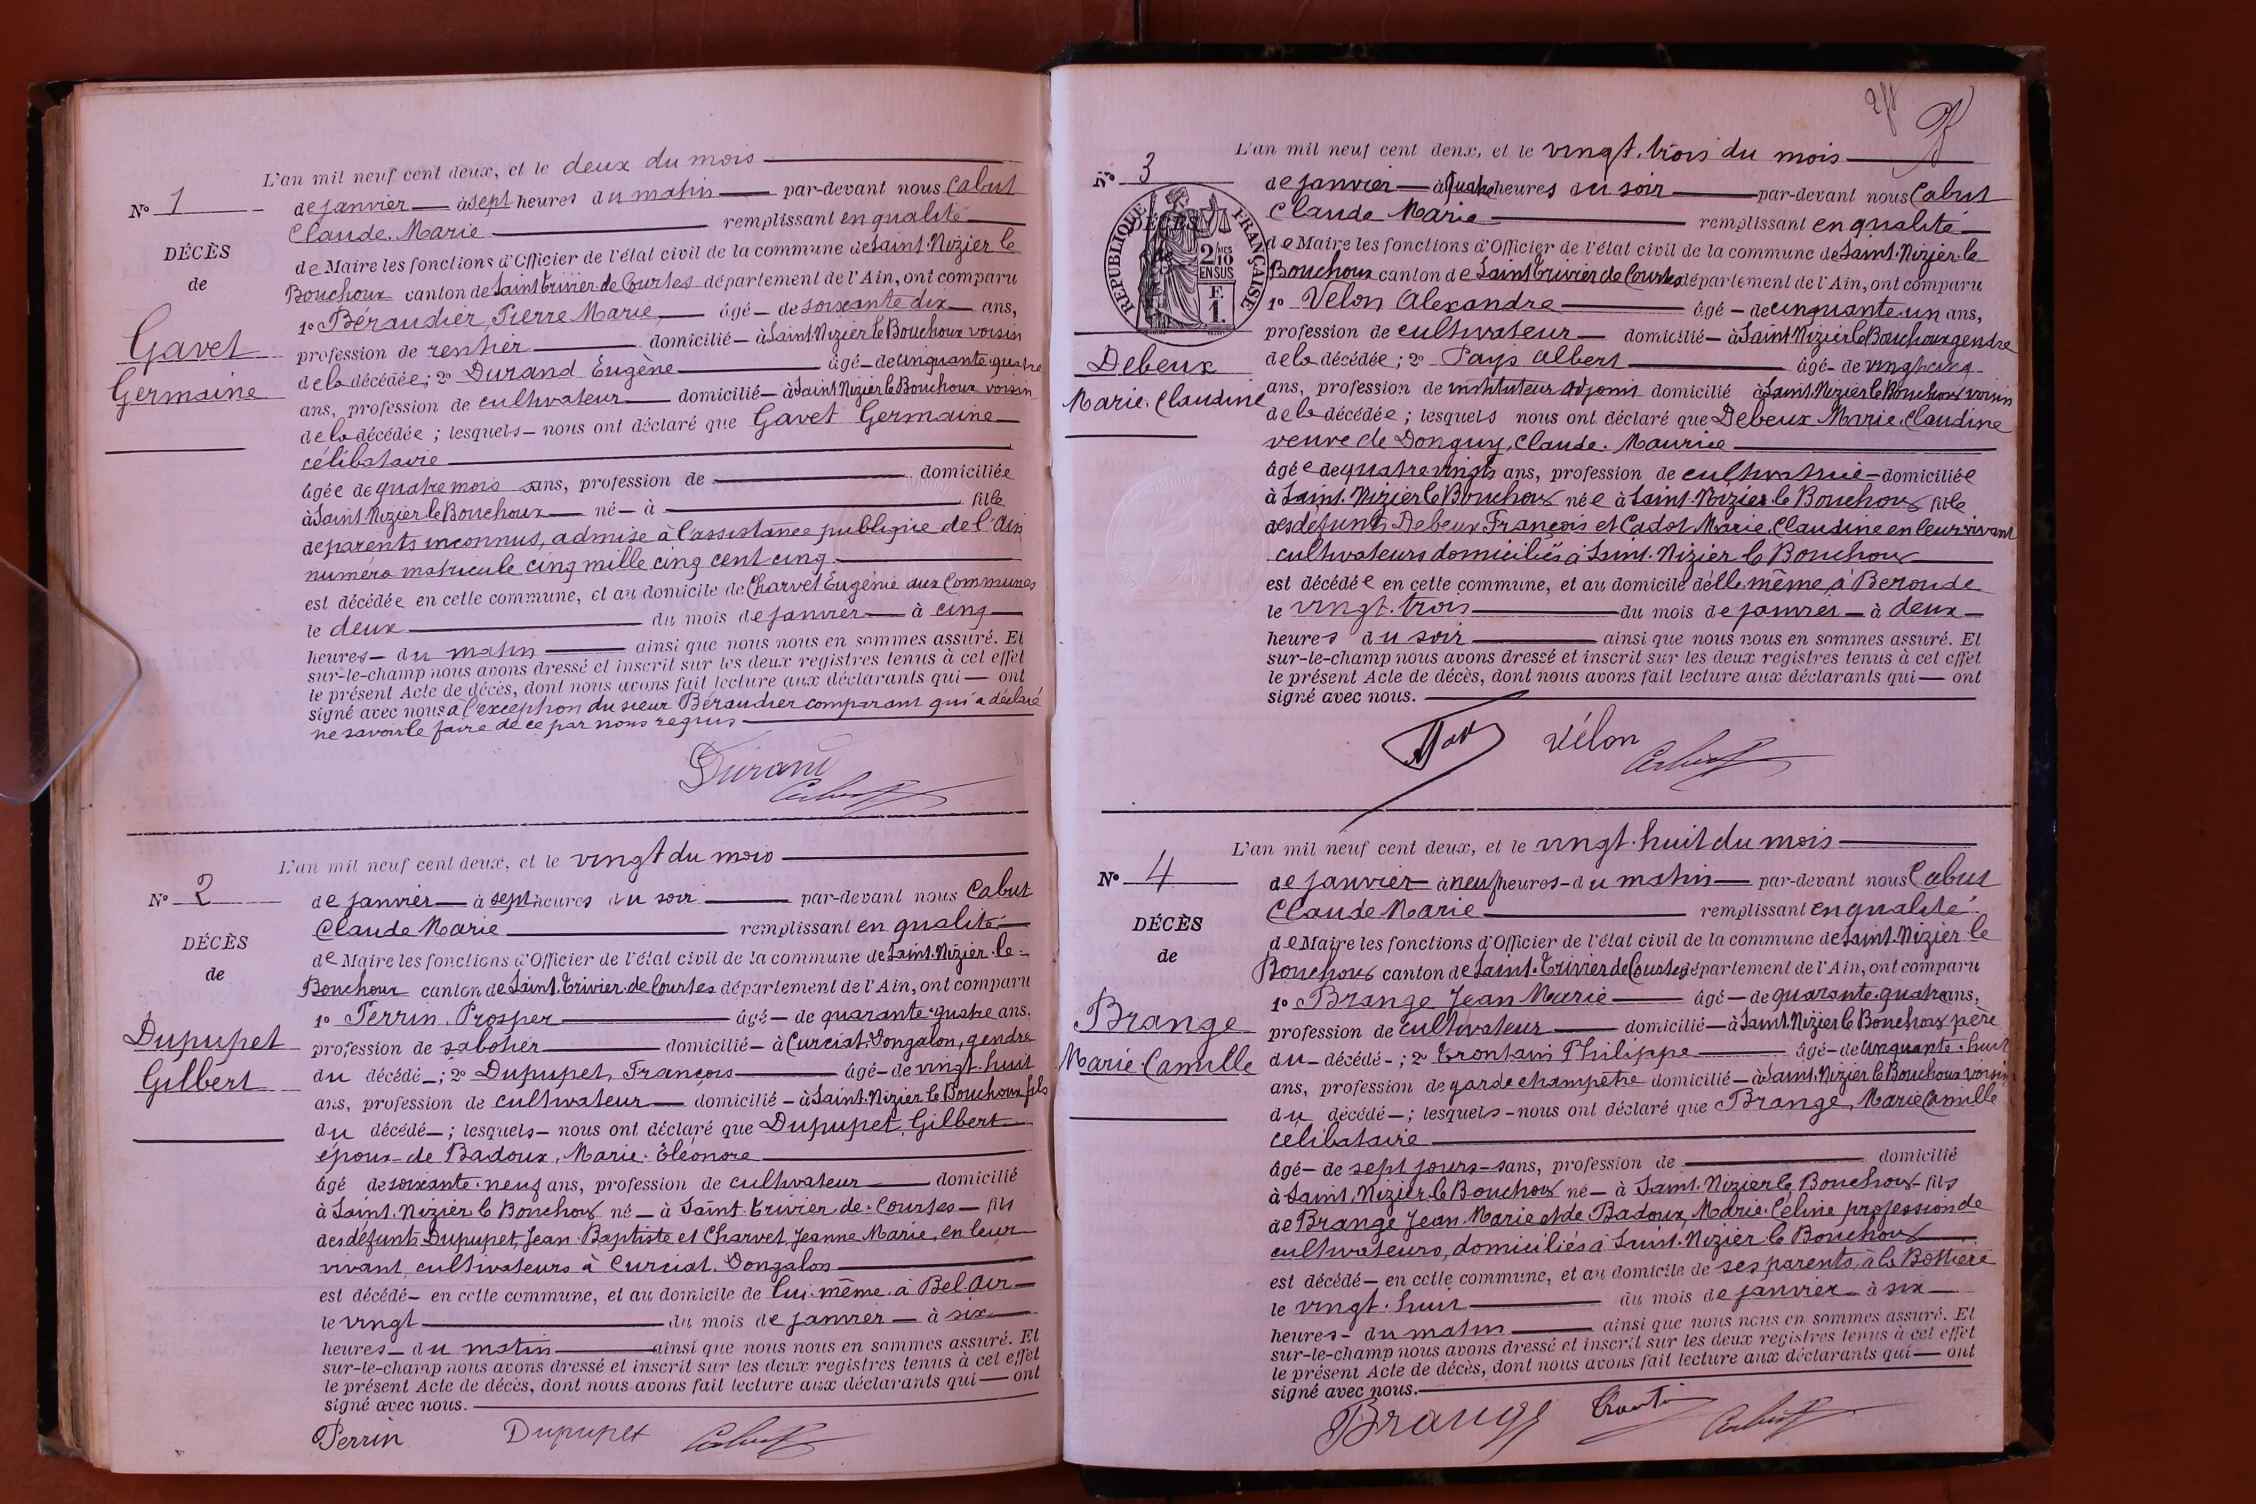 L'an mil neuf cent deux, et le deux du mois
N° 1
de janvier à sept heures du matin par-devant nous Cabut
Claude Marie remplissant en qualité
DÉCÈS
de Maire les fonctions d'Officier de l'état civil de la commune de Saint-Nizier le
de
Bouchoux canton de Saint Trivier de Courtes département de l'Ain, ont comparu
1° Béraudier, Pierre Marie, âgé de soixante dix ans,
Gavet
profession de rentier domicilié à Saint Nizier le Bouchoux voisin
de la décédée; 2° Durand Eugène âgé de cinquante quatre
Germaine
ans, profession de cultivateur domicilié à Saint Nizier le Bouchoux voisin
de la décédée; lesquels nous ont déclaré que Gavet Germaine
célibataire
âgée de quatre mois ans, profession de domiciliée
à Saint Nizier le Bouchoux né à fille
de parents inconnus, admise à l'assistance publique de l'Ain
numéro matricule cinq mille cinq cent cinq
est décédée en cette commune, et au domicile de Charvet Eugénie aux Communes
le deux du mois de janvier à cinq
heures du matin ainsi que nous nous en sommes assuré. Et
sur-le-champ nous avons dressé et inscrit sur les deux registres tenus à cet effet
le présent Acte de décès, dont nous avons fait lecture aux déclarants qui ont
signé avec nous à l'exception du sieur Béraudier comparant qui a déclaré
ne savoir le faire de ce par nous requis
Durand
Cabut
L'an mil neuf cent deux, et le vingt du mois
N° 2
de janvier à sept heures du soir par-devant nous Cabut
Claude Marie remplissant en qualité
DÉCÈS
de Maire les fonctions d'Officier de l'état civil de la commune de Saint-Nizier-le-
de
Bouchoux canton de Saint-Trivier-de-Courtes département de l'Ain, ont comparu
1° Perrin, Prosper âgé de quarante-quatre ans,
Dupupet
profession de sabotier domicilié à Curciat-Dongalon, gendre
Gilbert
du décédé; 2° Dupupet, François âgé de vingt-huit
ans, profession de cultivateur domicilié à Saint-Nizier le Bouchoux fils
du décédé; lesquels nous ont déclaré que Dupupet, Gilbert
époux de Badoux, Marie-Eléonore
âgé de soixante-neuf ans, profession de cultivateur domicilié
à Saint-Nizier le Bouchoux né à Saint-Trivier-de-Courtes fils
des défunts Dupupet, Jean-Baptiste et Charvet, Jeanne Marie, en leur
vivant, cultivateurs à Curciat-Dongalon
est décédé en cette commune, et au domicile de lui-même à Bel Air
le vingt du mois de janvier à six
heures du matin ainsi que nous nous en sommes assuré. Et
sur-le-champ nous avons dressé et inscrit sur les deux registres tenus à cet effet
le présent Acte de décès, dont nous avons fait lecture aux déclarants qui ont
signé avec nous.
Perrin Dupupet Cabut
L'an mil neuf cent deux, et le vingt-trois du mois
N° 3
de janvier à quatre heures du soir par-devant nous Cabut
Claude Marie remplissant en qualité
RÉPUBLIQUE FRANÇAISE
2/10 EN SUS
F. 1.
DÉCÈS
de Maire les fonctions d'Officier de l'état civil de la commune de Saint-Nizier-le
de
Bouchoux canton de Saint Trivier de Courtes département de l'Ain, ont comparu
1° Velon Alexandre âgé de cinquante-un ans,
profession de cultivateur domicilié à Saint-Nizier le Bouchoux gendre
Debeux
de la décédée; 2° Pays Albert âgé de vingt cinq
Marie-Claudine
ans, profession de instituteur adjoint domicilié à Saint-Nizier le Bouchoux voisin
de la décédée; lesquels nous ont déclaré que Debeux Marie-Claudine
veuve de Donguy, Claude-Maurice
âgée de quatre vingts ans, profession de cultivatrice domiciliée
à Saint-Nizier le Bouchoux née à Saint-Nizier le Bouchoux fille
des défunts Debeux François et Cadot Marie-Claudine en leur vivant
cultivateurs domiciliés à Saint-Nizier le Bouchoux
est décédée en cette commune, et au domicile d'elle même à Beroude
le vingt-trois du mois de janvier à deux
heures du soir ainsi que nous nous en sommes assuré. Et
sur-le-champ nous avons dressé et inscrit sur les deux registres tenus à cet effet
le présent Acte de décès, dont nous avons fait lecture aux déclarants qui ont
signé avec nous.
Vélon Cabut
L'an mil neuf cent deux, et le vingt-huit du mois
N° 4
de janvier à neuf heures du matin par-devant nous Cabut
Claude Marie remplissant en qualité
DÉCÈS
de Maire les fonctions d'Officier de l'état civil de la commune de Saint-Nizier le
de
Bouchoux canton de Saint-Trivier de Courtes département de l'Ain, ont comparu
1° Brange Jean Marie âgé de quarante-quatre ans,
Brange
profession de cultivateur domicilié à Saint-Nizier le Bouchoux père
Marie Camille
du décédé; 2° Trontain Philippe âgé de cinquante-huit
ans, profession de garde champêtre domicilié à Saint-Nizier le Bouchoux voisin
du décédé; lesquels nous ont déclaré que Brange, Marie Camille
célibataire
âgé de sept jours ans, profession de domicilié
à Saint-Nizier-le Bouchoux né à Saint-Nizier le Bouchoux fils
de Brange Jean Marie et de Badoux, Marie-Céline profession de
cultivateurs, domiciliés à Saint-Nizier-le Bouchoux
est décédé en cette commune, et au domicile de ses parents, à la Bottière
le vingt-huit du mois de janvier à six
heures du matin ainsi que nous nous en sommes assuré. Et
sur-le-champ nous avons dressé et inscrit sur les deux registres tenus à cet effet
le présent Acte de décès, dont nous avons fait lecture aux déclarants qui ont
signé avec nous.
Brange Cabut